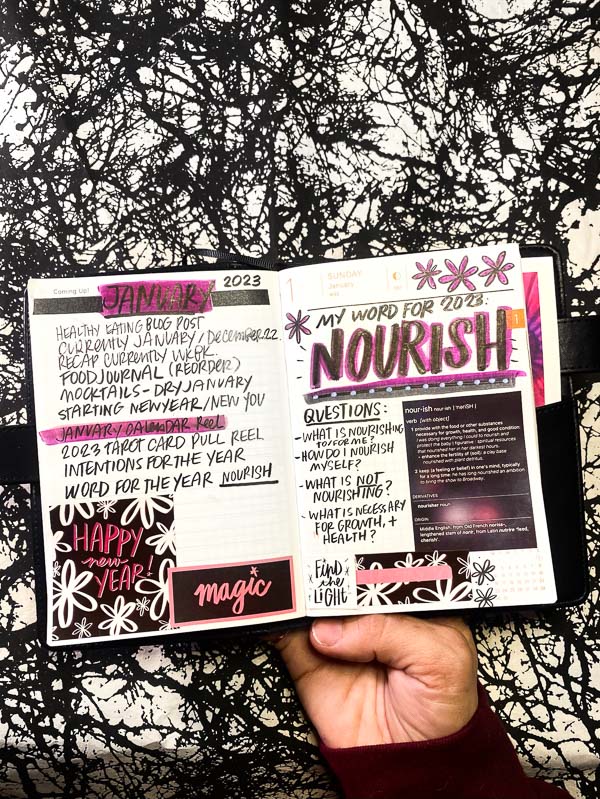 Coming Up!
JANUARY
2023
HEALTHY EATING BLOG POST
CURRENTLY JANUARY / DECEMBER 22
RECAP CURRENTLY WKBK.
FOOD JOURNAL (REORDER)
MOCKTAILS - DRY JANUARY
STARTING NEW YEAR / NEW YOU
JANUARY CALENDAR REEL
2023 TAROT CARD PULL REEL
INTENTIONS FOR THE YEAR
WORD FOR THE YEAR NOURISH
HAPPY
new
YEAR!
magic
1
SUNDAY
January
MY WORD FOR 2023:
NOURISH
1
QUESTIONS:
- WHAT IS NOURISHING
TO/FOR ME?
- HOW DO I NOURISH
MYSELF?
- WHAT IS NOT
NOURISHING?
- WHAT IS NECESSARY
FOR GROWTH, +
HEALTH?
nour·ish
verb (with object)
1 provide with the food or other substances
necessary for growth, health, and good condition:
I was doing everything I could to nourish and
protect the baby | figurative : spiritual resources
that nourished her in her darkest hours.
• enhance the fertility of (soil): a clay base
nourished with plant detritus.
2 keep (a feeling or belief) in one's mind, typically
for a long time: he has long nourished an ambition
to bring the show to Broadway.
DERIVATIVES
nourisher noun
ORIGIN
Middle English: from Old French noriss-,
lengthened stem of norir, from Latin nutrire 'feed,
cherish'.
Find
the
LIGHT